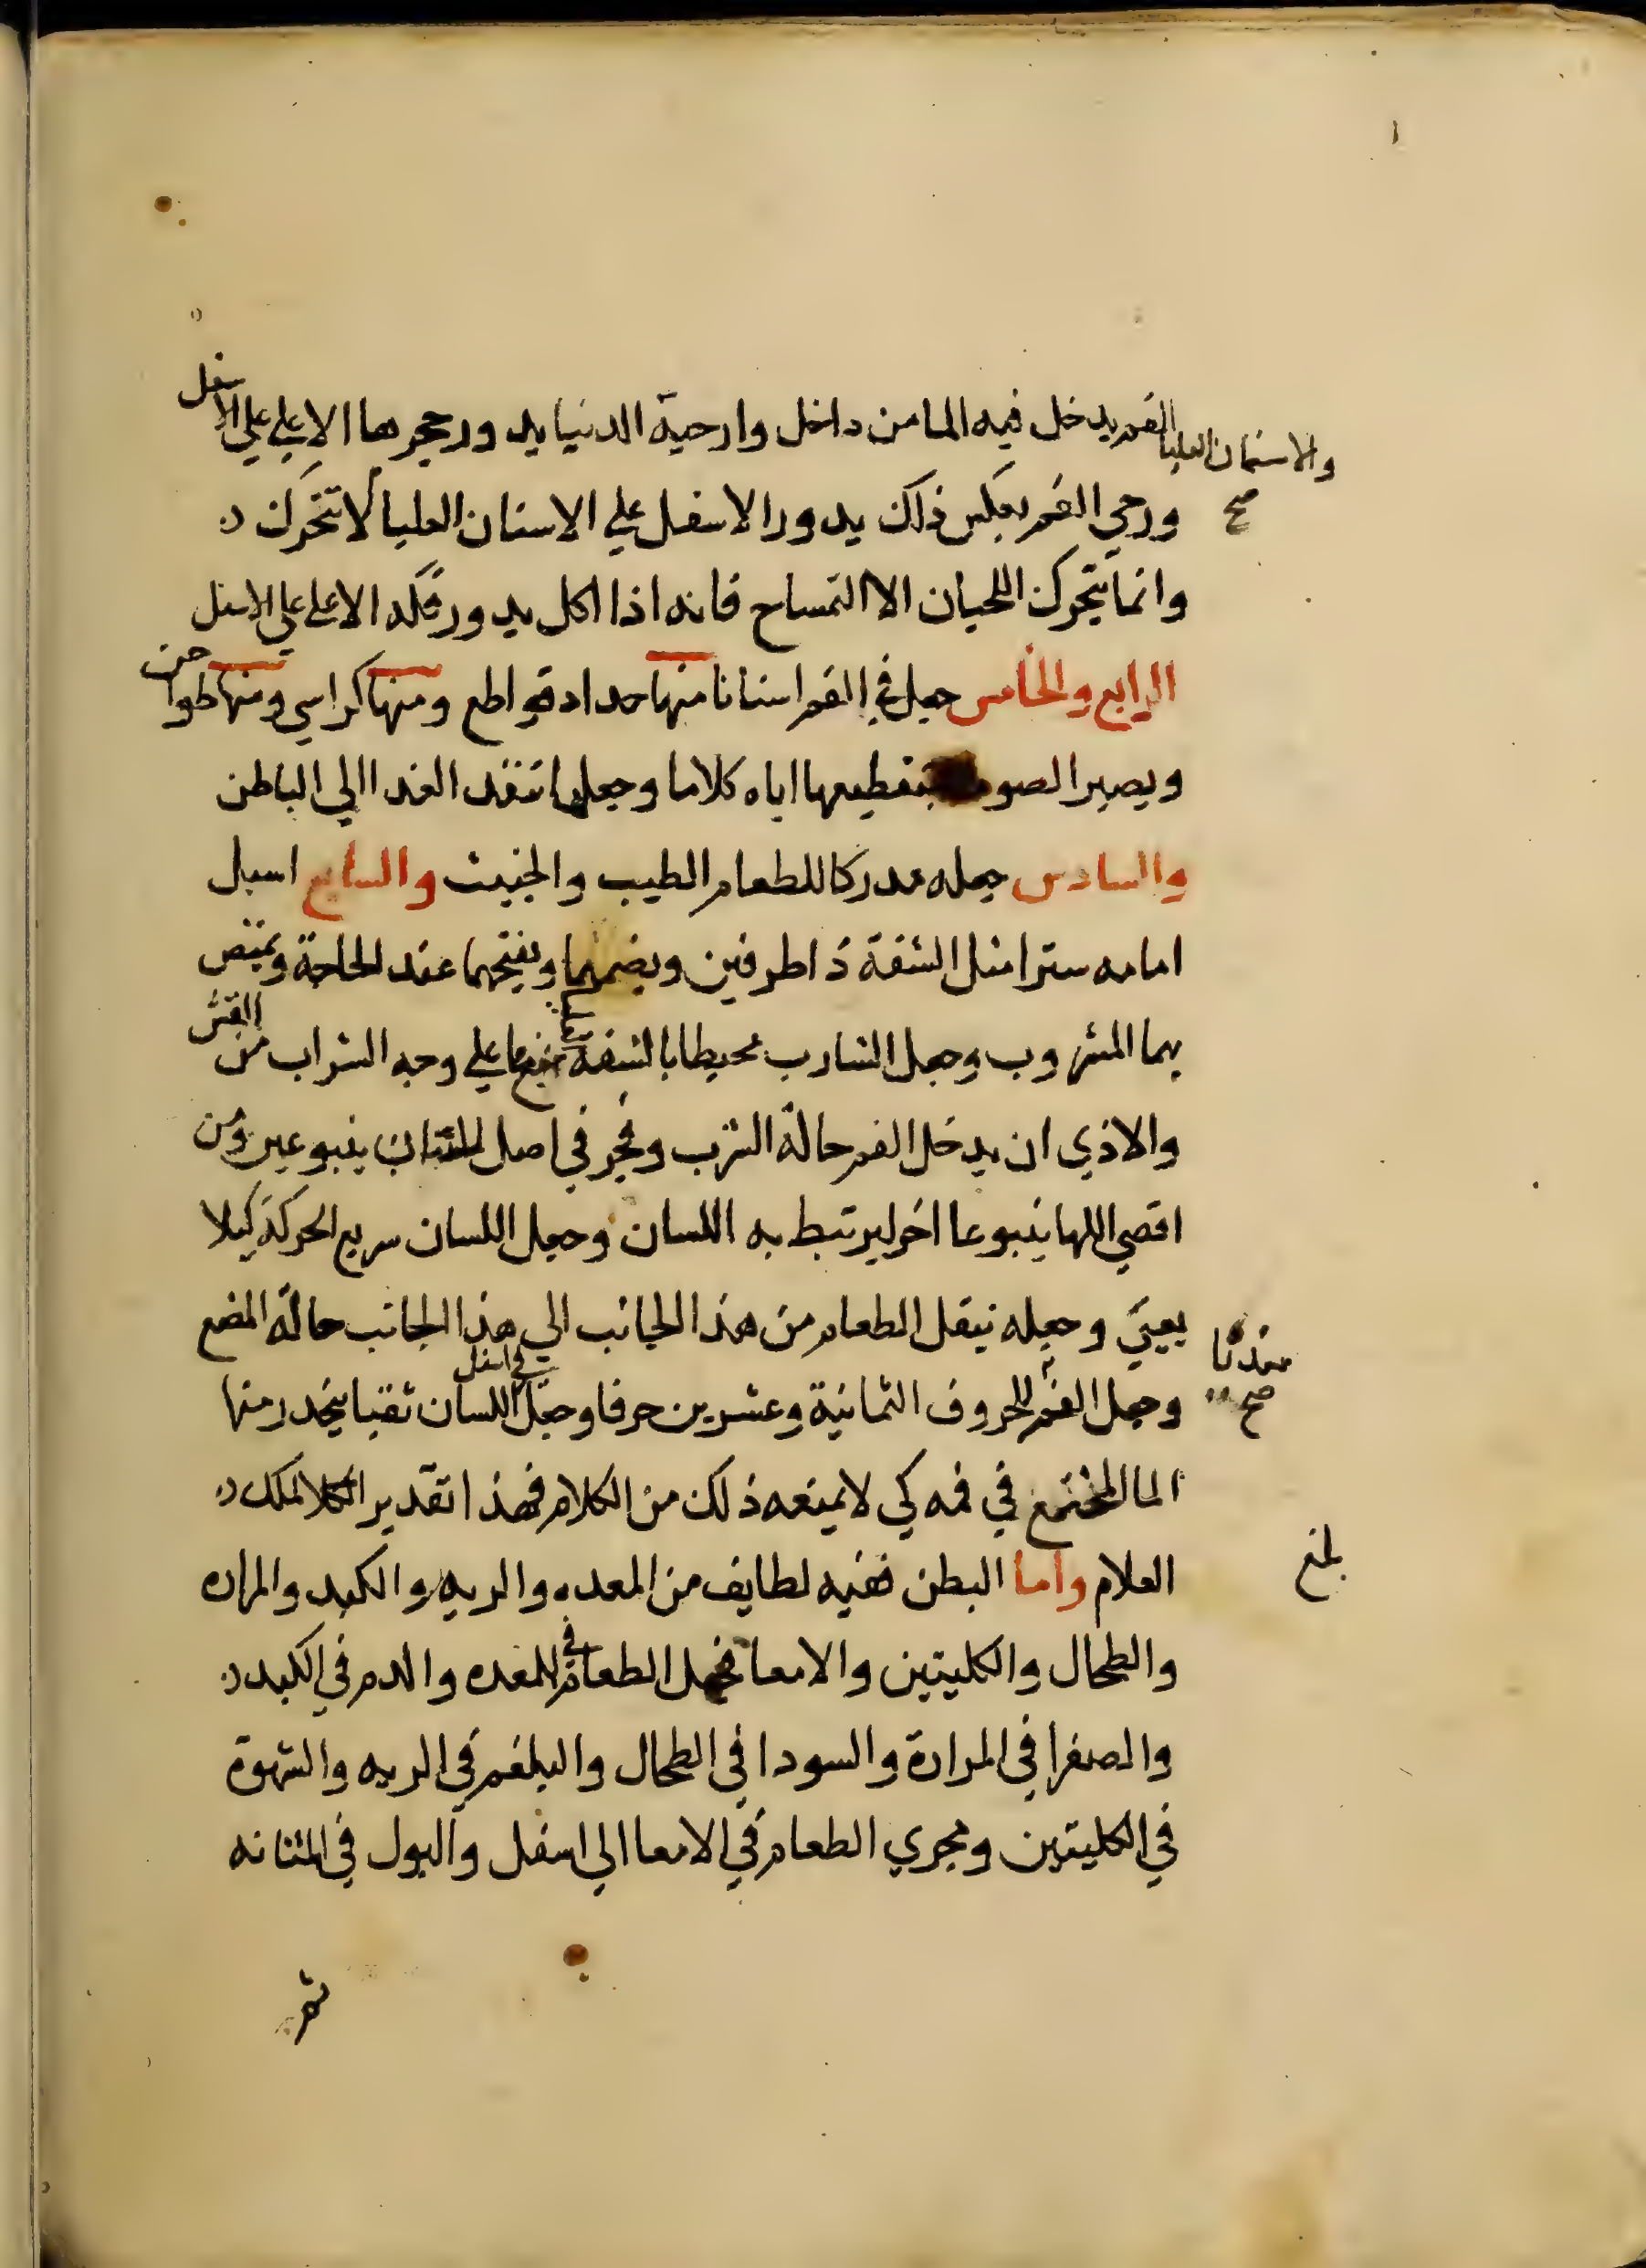 الفم يدخل فيه الما من داخل وارحية الدنيا يدور حجرها الاعلي علي الاسفل
والاسنان العليا
صح
ورحي الفم بعكس ذلك يدور الاسفل علي الاسنان العليا لا تتحرك
وانما يتحرك اللحيان الا التمساح فانه اذا اكل يدور فكه الاعلي علي الاسفل
الرابع والخامس جعل في الفم اسنانا منها حداد قواطع ومنها كراسي ومنها طواحن
ويصير الصوت بتقطيعها اياه كلاما وجعلها تنفذ الغدا الي الباطن
والسادس جعله مدركا للطعام الطيب والخبيث والسابع اسبل
امامه سترا مثل الشفة ذا طرفين ويضمهما ويفتحهما عند الحاجة ويمتص
بهما المشروب وجعل الشارب محيطا بالشفة علي وجه الشراب من القش
والاذي ان يدخل الفم حالة الشرب وفجر في اصل اللسان ينبوعين ومن
اقصي اللها ينبوعا اخر ليرتبط به اللسان وجعل اللسان سريع الحركة كيلا
يعيي وجعله ينقل الطعام من هذا الجانب الي هذا الجانب حالة المضغ
صح
وجعل الفم للحروف الثمانية وعشرين حرفا وجعل في اسفل اللسان ثقبا ينحدر منها
الما المجتمع في فمه كي لا يمنعه ذلك من الكلام فهذا تقدير الملك
العلام واما البطن ففيه لطايف من المعده والريه والكبد والمراره
بلغ
والطحال والكليتين والامعا فجعل الطعام في المعده والدم في الكبد
والصفرا في المرارة والسودا في الطحال والبلغم في الريه والشهوة
في الكليتين ومجري الطعام في الامعا الي اسفل والبول في المثانه